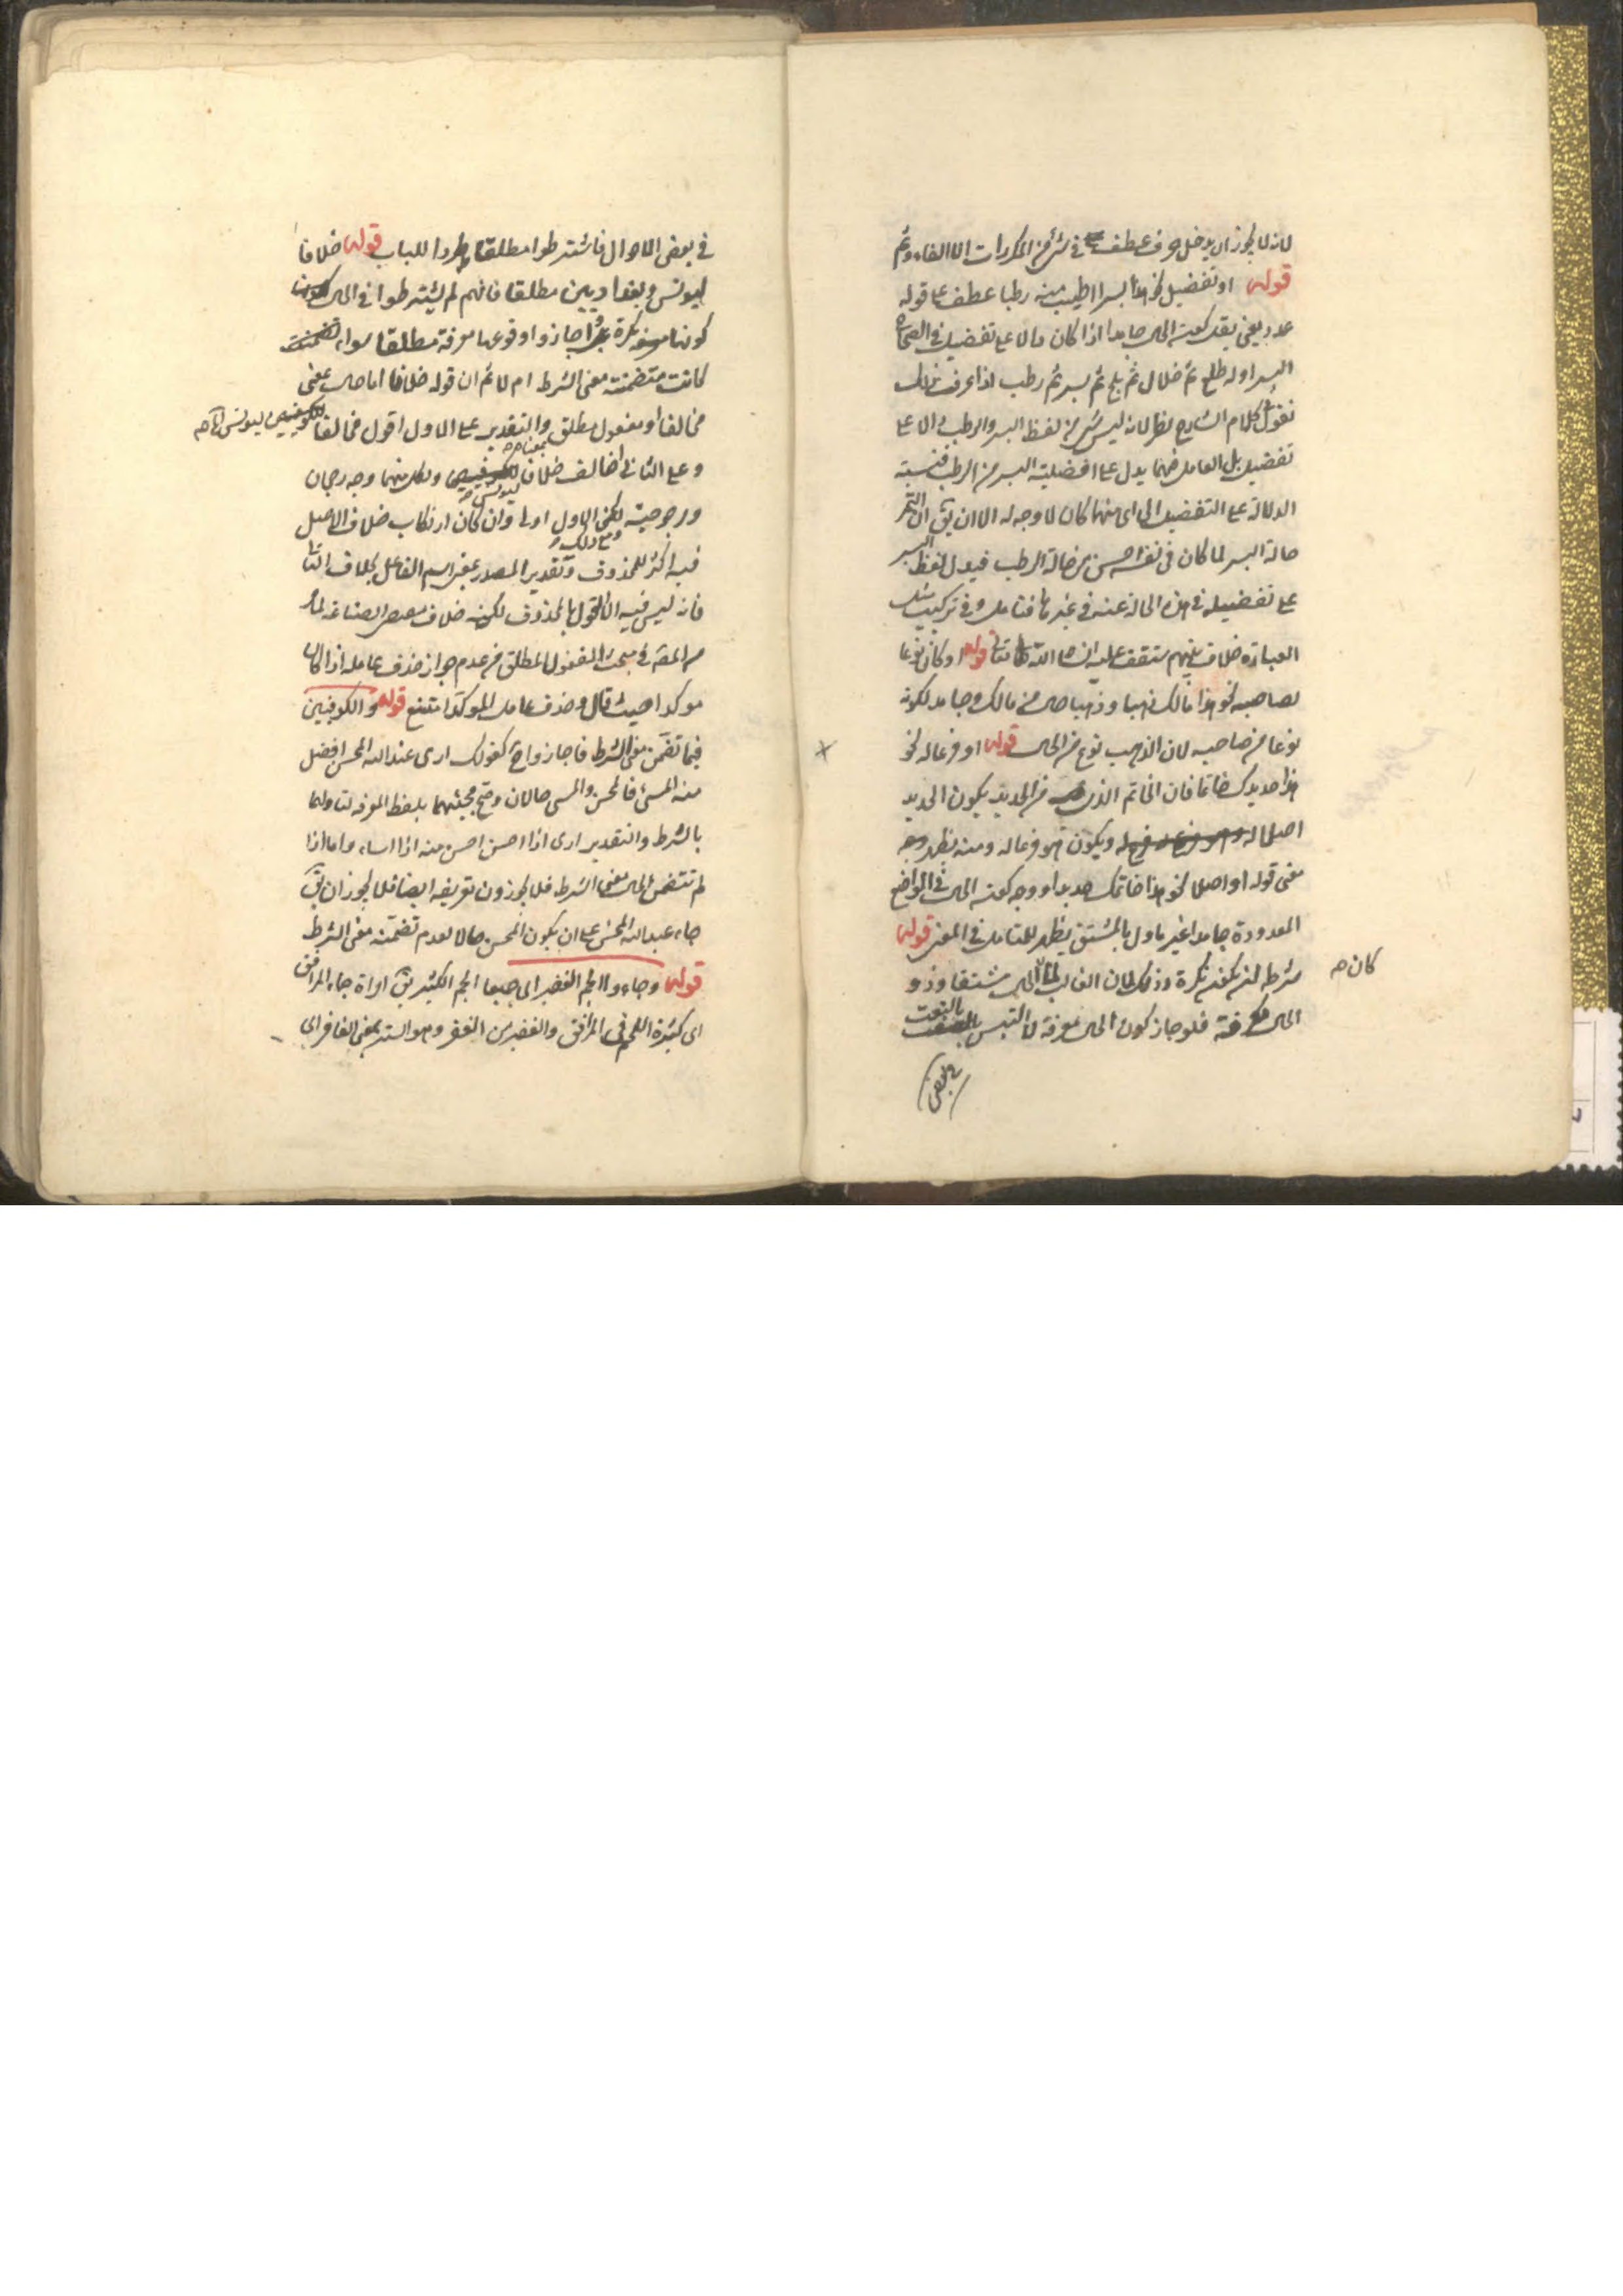 لانه لا يجوز ان يدخل حرف عطف في شئ من المكررات الا الفاء وثم
قوله او تفضيل نحو هذا بسرا اطيب منه رطبا عطف على قوله
عدد يعنى يقد كونه الحال جامدا اذا كان دالا على تفضيل في الصحاح
البسر اوله طلع ثم خلال ثم بلح ثم بسر ثم رطب اذا عرفت ذلك
نقول في كلام الشارح نظر لانه ليس شئ من لفظ البسر والرطب دالا على
تفضيل بل العامل فيهما يدل على افضلية البسر من الرطب فنسبة
الدلالة على التفضيل الى اى منهما كان لا وجه له الا ان يق ان التمر
حالة البسر لما كان في نفسه احسن من حالة الرطب فيدل لفظ البسر
على تفضيله في هذه الحالة عنه في غيرها فتامل وفي تركيب مثل
العبارة خلاف بينهم ستقف عليه انشا الله تعالى قوله او كان نوعا
لصاحبه نحو هذا مالك ذهبا وذهبا حال من مالك وجامد لكونه
نوعا من صاحبه لان الذهب نوع من المال قوله او فرعا له نحو
هذا حديدك خاتما فان الخاتم الذى من الحديد يكون الحديد
اصلا له ويكون هو فرعا له ومنه يظهر وجه
معنى قوله او اصلا نحو هذا خاتمك حديدا ووجه كونه الحال في المواضع
المعدودة جامدا غير ماول بالمشتق يظهر للمتامل في المعنى قوله
شرطها ان يكون نكرة وذلك لان الغالب كان الحال مشتقا وذو
الحال معرفة فلو جاز كون الحال معرفة لالتبس بالنعت
في بعض
في بعض الاحوال فاشترطوا مطلقا طردا للباب قوله خلافا
ليونس وبغداديين مطلقا فانهم لم يشترطوا في الحال
كونها نكرة بل اجازوا وقوعها معرفة مطلقا سواء
كانت متضمنة معنى الشرط ام لا ثم ان قوله خلافا اما حال بمعنى
مخالفا او مفعول مطلق والتقدير على الاول اقول مخالفا ليونس
وعلى الثانى اخالف خلافا ليونس ولكل منهما وجه رجحان
ومرجوحية لكن الاول اولى وان كان ارتكاب خلاف الاصل
فيه اكثر للمحذوف وتقدير المصدر بمعنى اسم الفاعل بخلاف الثانى
فانه ليس فيه الا القول بالمحذوف لكونه خلاف الصناعة لما
مر المص في مبحث المفعول المطلق من عدم جواز حذف عامله اذا كان
موكدا حيث قال وحذف عامل الموكد امتنع قوله والكوفيين
فيما تضمن معنى الشرط فاجازوا ح كقولك ارى عبد الله المحسن افضل
منه المسئ فالمحسن والمسئ حالان وصح مجيئهما بلفظ المعرفة لتاولهما
بالشرط والتقدير ارى اذا احسن احسن منه اذا اساء واما اذا
لم تتضمن الحال معنى الشرط فلا يجوزون تعريفه ايضا فلا يجوز ان يق
جاء عبد الله المحسن على ان يكون المحسن حالا لعدم تضمنه معنى الشرط
قوله وجاءوا الجم الغفير اى جميعا الجم الكثير يق امراة جماء المرافق
اى كثيرة اللحم في المرافق والغفير من الغفر وهو الستر بمعنى الغافر اى